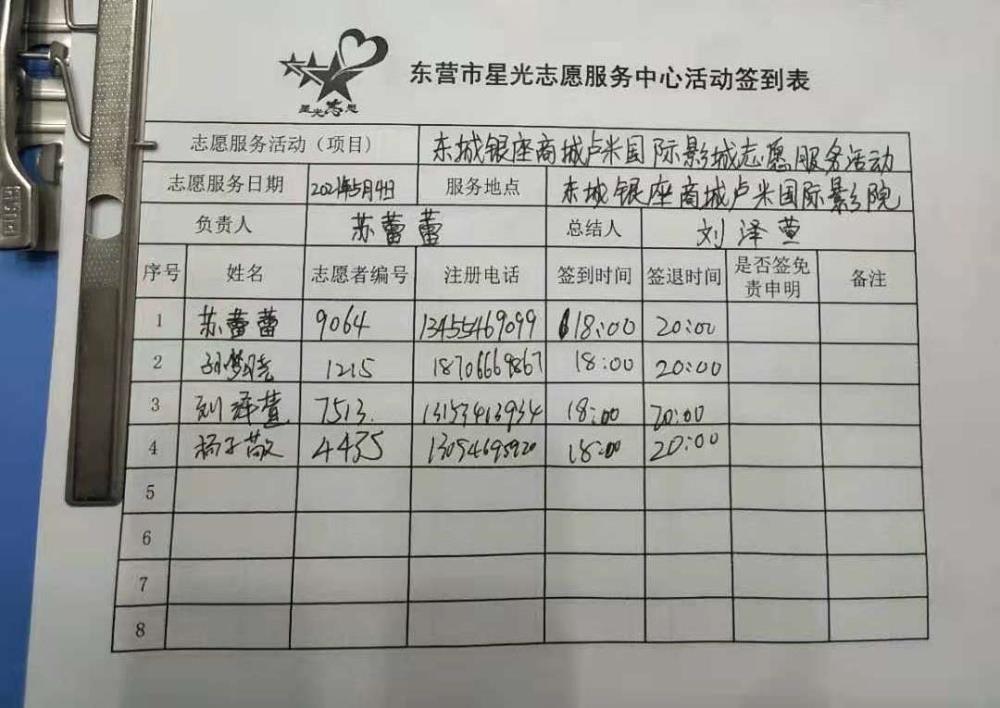 星光志愿
东营市星光志愿服务中心活动签到表
志愿服务活动（项目） 东城银座商城卢米国际影城志愿服务活动
志愿服务日期 2021年5月4日 服务地点 东城银座商城卢米国际影院
负责人 苏蕾蕾 总结人 刘泽萱
序号 姓名 志愿者编号 注册电话 签到时间 签退时间 是否签免责申明 备注
1 苏蕾蕾 9064 13455469099 18:00 20:00
2 孙梦晓 1215 18706669867 18:00 20:00
3 刘泽萱 7513. 13153413934 18:00 20:00
4 杨子敬 4435 13054695920 18:00 20:00
5
6
7
8